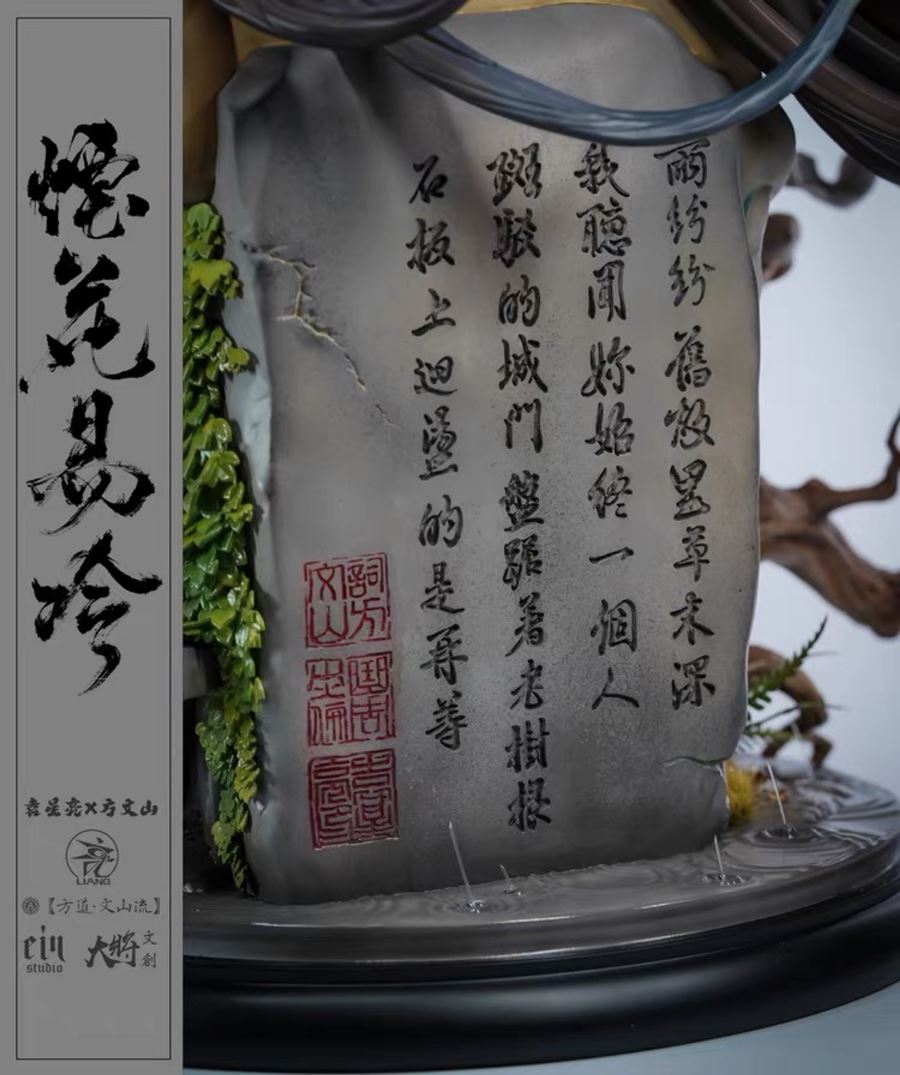 煙花易冷
雨紛紛 舊故里草木深
我聽聞 妳始終一個人
斑駁的城門 盤踞著老樹根
石板上迴盪的是再等
詞方文山
曲周杰倫
袁星亮X方文山
LIANG
【方道·文山流】
ein studio
大將文創